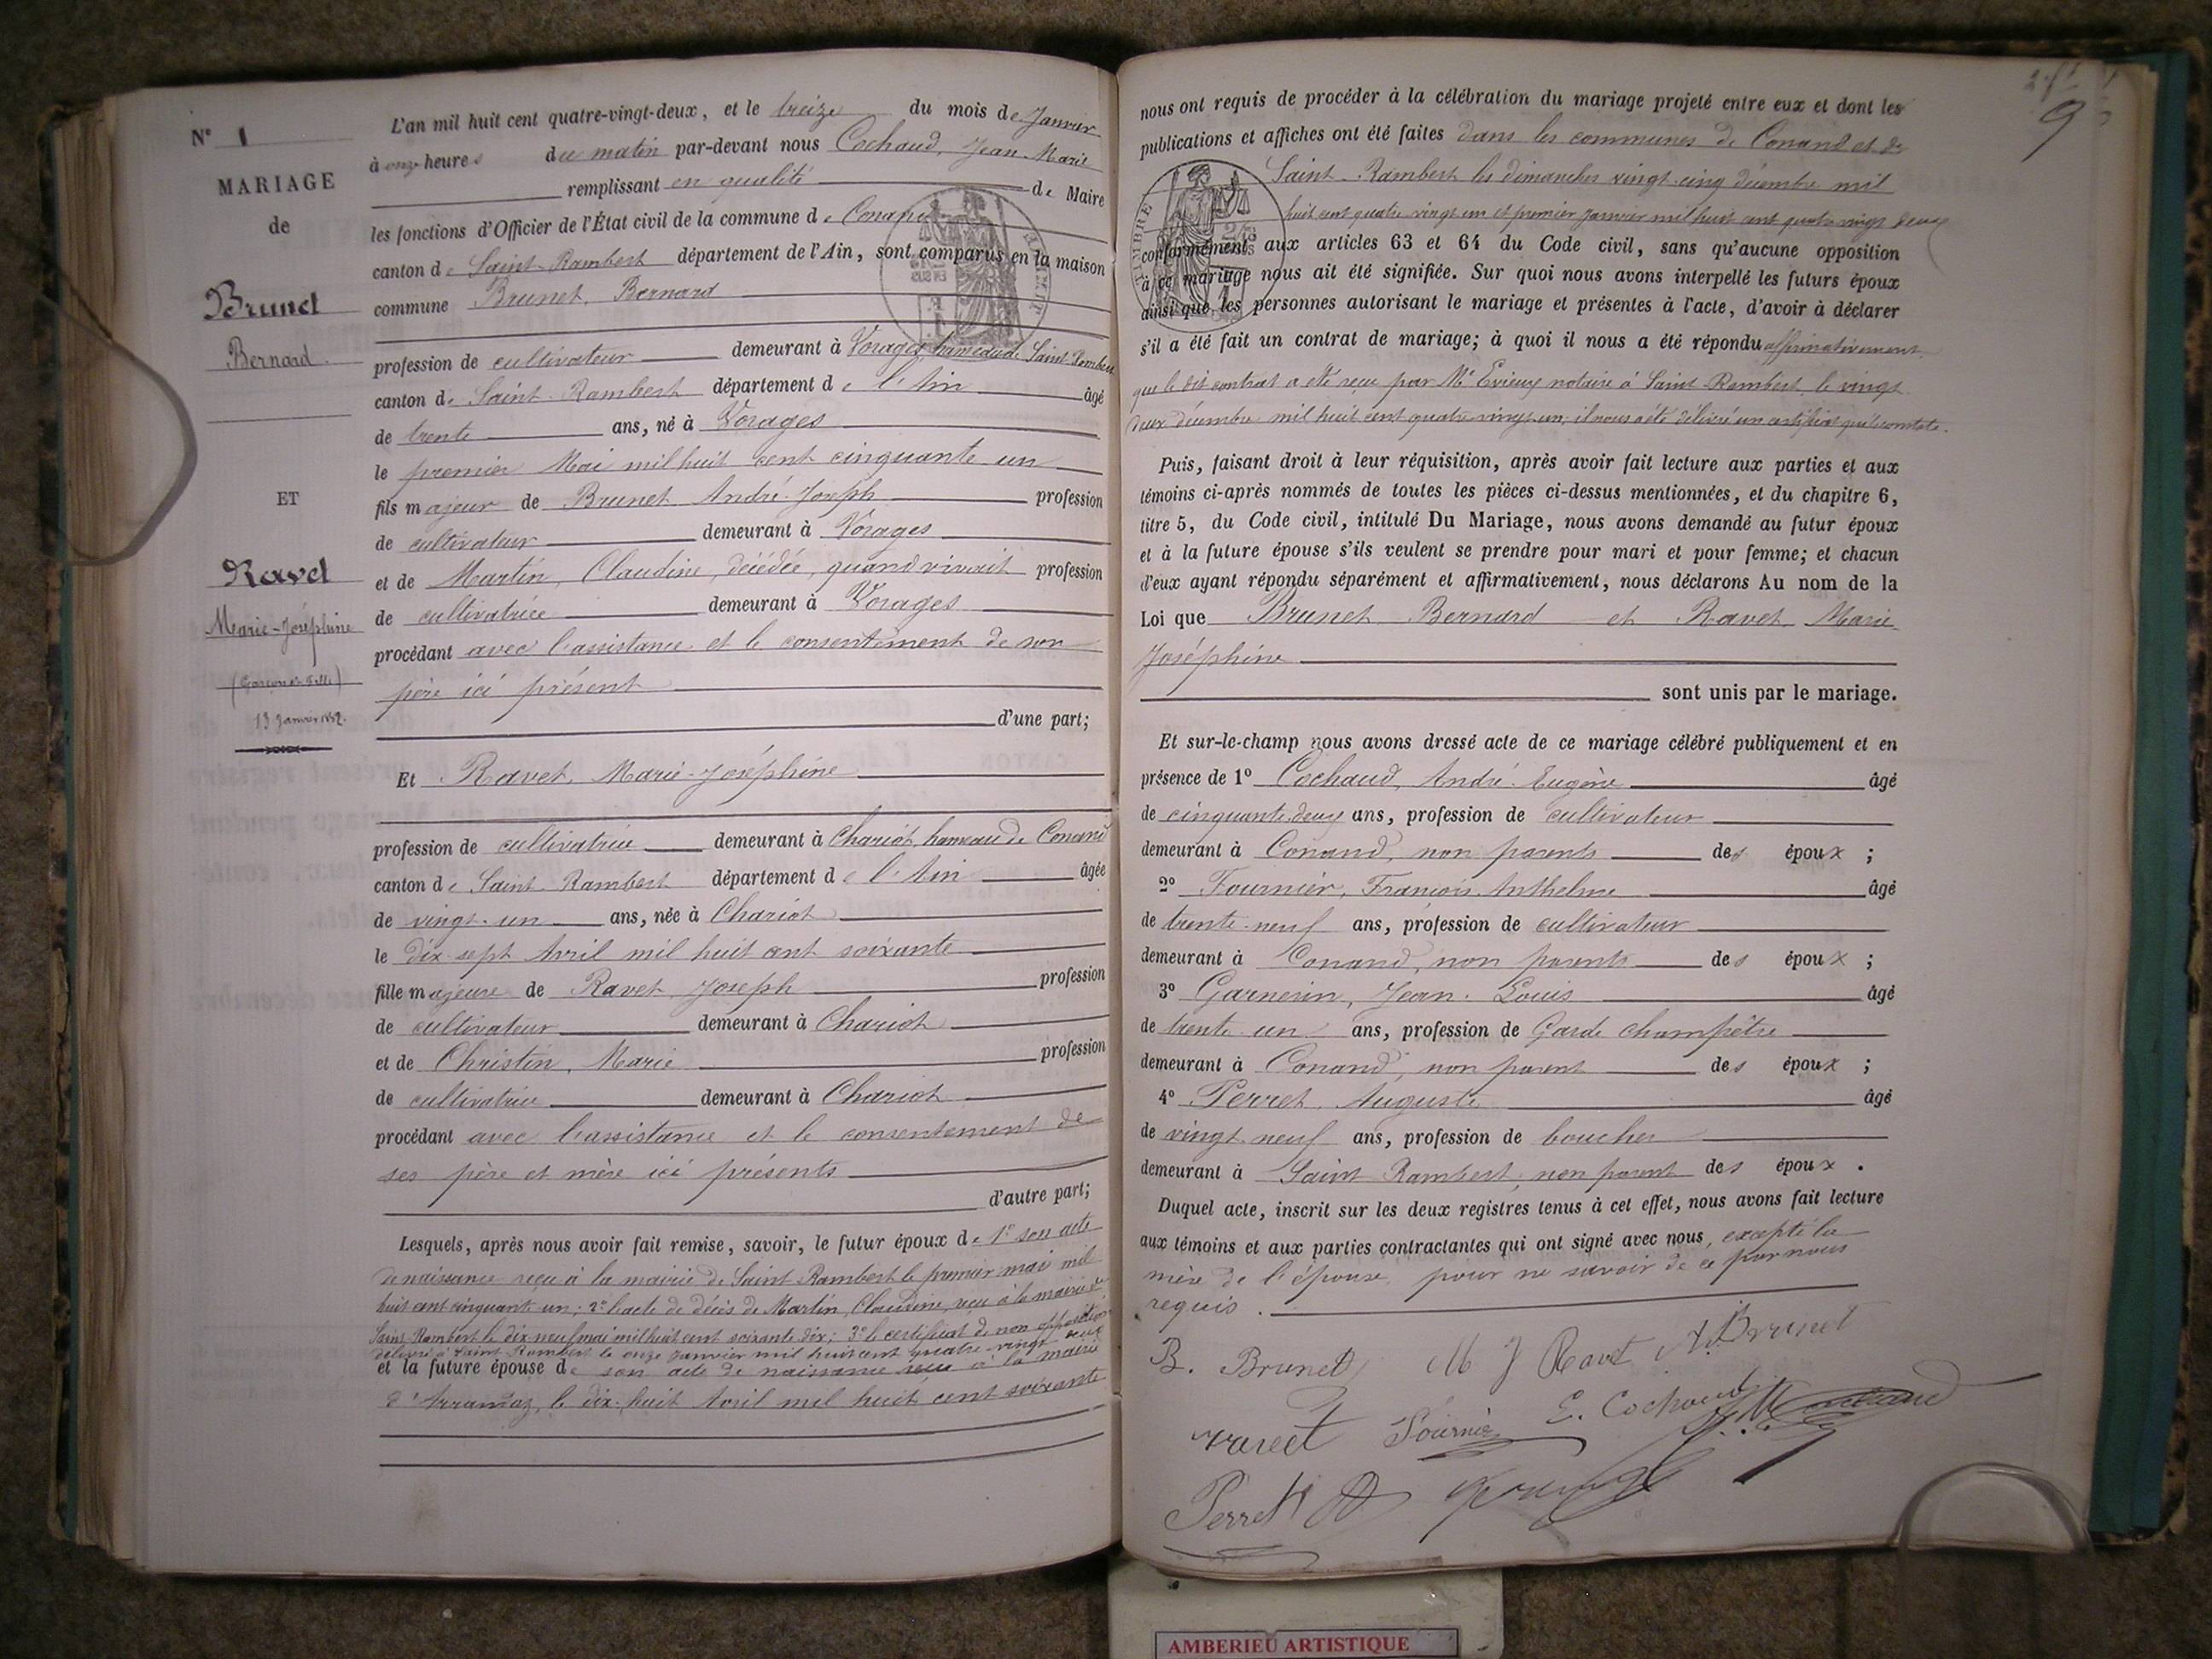 N° 1
MARIAGE
de
Brunet
Bernard
ET
Ravet
Marie-Joséphine
(Garçon et Fille)
13 Janvier 1882.
L'an mil huit cent quatre-vingt-deux, et le treize du mois de Janvier
à onze heures du matin par-devant nous Cochaud, Jean-Marie
remplissant en qualité de Maire
les fonctions d'Officier de l'État civil de la commune de Conand
canton de Saint-Rambert département de l'Ain, sont comparus en la maison
commune Brunet, Bernard
profession de cultivateur demeurant à Vorages hameau de Saint-Rambert
canton de Saint-Rambert département de l'Ain âgé
de trente ans, né à Vorages
le premier Mai mil huit cent cinquante un
fils majeur de Brunet André-Joseph profession
de cultivateur demeurant à Vorages
et de Martin, Claudine, décédée, quand vivait profession
de cultivatrice demeurant à Vorages
procédant avec l'assistance et le consentement de son
père ici présent
d'une part;
Et Ravet, Marie-Joséphine
profession de cultivatrice demeurant à Chariot, hameau de Conand
canton de Saint-Rambert département de l'Ain âgée
de vingt-un ans, née à Chariot
le dix-sept Avril mil huit cent soixante
fille majeure de Ravet, Joseph profession
de cultivateur demeurant à Chariot
et de Christin, Marie profession
de cultivatrice demeurant à Chariot
procédant avec l'assistance et le consentement de
ses père et mère ici présents
d'autre part;
Lesquels, après nous avoir fait remise, savoir, le futur époux de 1° son acte
de naissance reçu à la mairie de Saint Rambert le premier mai mil
huit cent cinquante un; 2° l'acte de décès de Martin, Claudine, reçu à la mairie de
Saint-Rambert le dix neuf mai mil huit cent soixante dix; 3° le certificat de non opposition
délivré à Saint Rambert le onze Janvier mil huit cent quatre-vingt deux
et la future épouse de son acte de naissance reçu à la mairie
d'Arrandaz, le dix-huit Avril mil huit cent soixante
9
nous ont requis de procéder à la célébration du mariage projeté entre eux et dont les
publications et affiches ont été faites dans les communes de Conand et de
Saint-Rambert les dimanches vingt-cinq décembre mil
huit cent quatre vingt un et premier Janvier mil huit cent quatre vingt deux
TIMBRE
conformément aux articles 63 et 64 du Code civil, sans qu'aucune opposition
à ce mariage nous ait été signifiée. Sur quoi nous avons interpellé les futurs époux
ainsi que les personnes autorisant le mariage et présentes à l'acte, d'avoir à déclarer
s'il a été fait un contrat de mariage; à quoi il nous a été répondu affirmativement
que le dit contrat a été reçu par Me Evieux notaire à Saint-Rambert, le vingt
deux décembre mil huit cent quatre vingt un, il nous a été délivré un certificat qui le constate.
Puis, faisant droit à leur réquisition, après avoir fait lecture aux parties et aux
témoins ci-après nommés de toutes les pièces ci-dessus mentionnées, et du chapitre 6,
titre 5, du Code civil, intitulé Du Mariage, nous avons demandé au futur époux
et à la future épouse s'ils veulent se prendre pour mari et pour femme; et chacun
d'eux ayant répondu séparément et affirmativement, nous déclarons Au nom de la
Loi que Brunet Bernard et Ravet Marie
Joséphine
sont unis par le mariage.
Et sur-le-champ nous avons dressé acte de ce mariage célébré publiquement et en
présence de 1° Cochaud, André-Eugène âgé
de cinquante-deux ans, profession de cultivateur
demeurant à Conand, non parents des époux ;
2° Fournier, François Anthelme âgé
de trente-neuf ans, profession de cultivateur
demeurant à Conand, non parents des époux ;
3° Garnerin, Jean-Louis âgé
de trente un ans, profession de Garde champêtre
demeurant à Conand, non parent des époux ;
4° Perret, Auguste âgé
de vingt-neuf ans, profession de boucher
demeurant à Saint Rambert, non parent des époux .
Duquel acte, inscrit sur les deux registres tenus à cet effet, nous avons fait lecture
aux témoins et aux parties contractantes qui ont signé avec nous, excepté la
mère de l'épouse pour ne savoir de ce par nous
requis.
B. Brunet M J Ravet A. Brunet
ravet Fournier E. Cochaud
Perret
AMBERIEU ARTISTIQUE